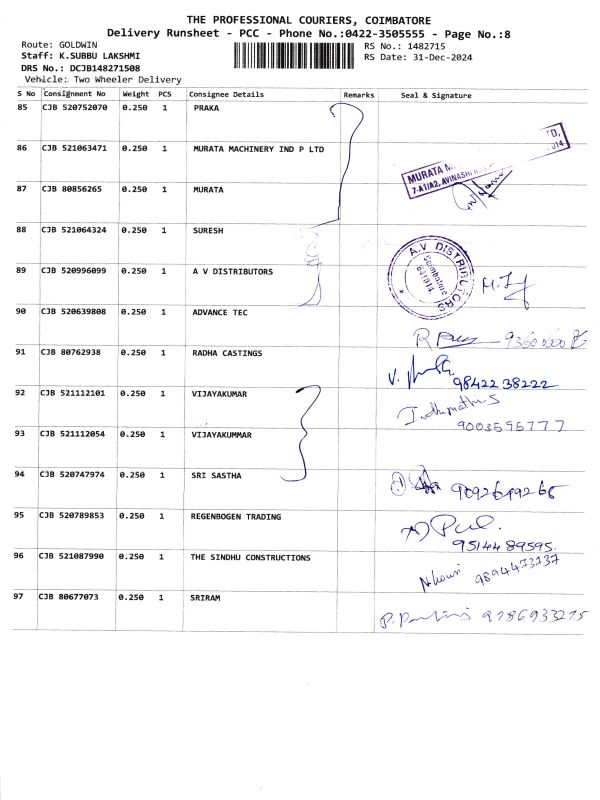 THE PROFESSIONAL COURIERS, COIMBATORE
Delivery Runsheet - PCC - Phone No.:0422-3505555 - Page No.:8
Route: GOLDWIN
Staff: K.SUBBU LAKSHMI
DRS No.: DCJB148271508
Vehicle: Two Wheeler Delivery
RS No.: 1482715
RS Date: 31-Dec-2024
S No Consignment No Weight PCS Consignee Details Remarks Seal & Signature
85 CJB 520752070 0.250 1 PRAKA
86 CJB 521063471 0.250 1 MURATA MACHINERY IND P LTD
MURATA M
7-A1/A2, AVINASHI
TD,
014
87 CJB 80856265 0.250 1 MURATA
88 CJB 521064324 0.250 1 SURESH
89 CJB 520996099 0.250 1 A V DISTRIBUTORS
A.V DISTRIBUTORS
Coimbatore
641014
90 CJB 520639808 0.250 1 ADVANCE TEC
91 CJB 80762938 0.250 1 RADHA CASTINGS
98422 38222
92 CJB 521112101 0.250 1 VIJAYAKUMAR
9003595777
93 CJB 521112054 0.250 1 VIJAYAKUMMAR
94 CJB 520747974 0.250 1 SRI SASTHA
9092649266
95 CJB 520789853 0.250 1 REGENBOGEN TRADING
95144 89595
96 CJB 521087990 0.250 1 THE SINDHU CONSTRUCTIONS
9894473737
97 CJB 80677073 0.250 1 SRIRAM
9786933275